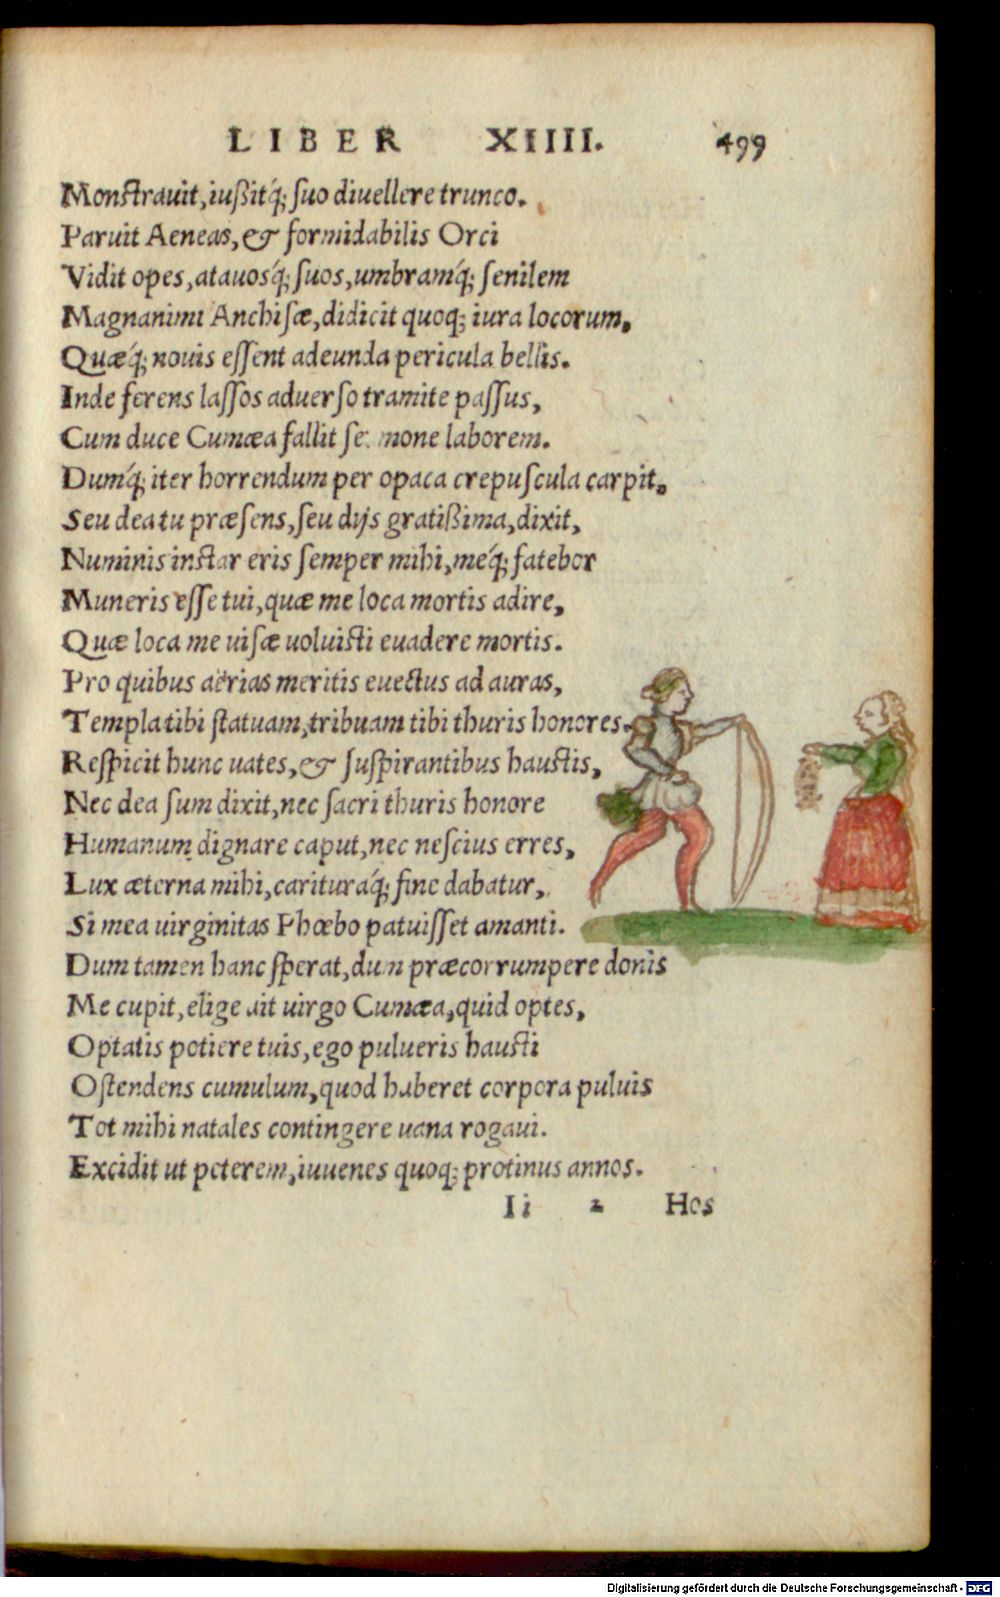 LIBER XIIII. 499
Monstrauit, iußitq́; suo diuellere trunco.
Paruit Aeneas, & formidabilis Orci
Vidit opes, atauosq́; suos, umbramq́; senilem
Magnanimi Anchisæ, didicit quoq; iura locorum,
Quæq́; nouis essent adeunda pericula bellis.
Inde ferens lassos aduerso tramite passus,
Cum duce Cumæa fallit sermone laborem.
Dumq́; iter horrendum per opaca crepuscula carpit,
Seu dea tu præsens, seu dijs gratißima, dixit,
Numinis instar eris semper mihi, meq́; fatebor
Muneris esse tui, quæ me loca mortis adire,
Quæ loca me uisæ uoluisti euadere mortis.
Pro quibus aërias meritis euectus ad auras,
Templa tibi statuam, tribuam tibi thuris honores.
Respicit hunc uates, & suspirantibus haustis,
Nec dea sum dixit, nec sacri thuris honore
Humanum dignare caput, nec nescius erres,
Lux æterna mihi, carituraq́; fine dabatur,
Si mea uirginitas Phœbo patuisset amanti.
Dum tamen hanc sperat, dum præcorrumpere donis
Me cupit, elige ait uirgo Cumæa, quid optes,
Optatis potiere tuis, ego pulueris hausti
Ostendens cumulum, quod haberet corpora puluis
Tot mihi natales contingere uana rogaui.
Excidit ut peterem, iuuenes quoq; protinus annos.
Ii 2 Hos
Digitalisierung gefördert durch die Deutsche Forschungsgemeinschaft - DFG